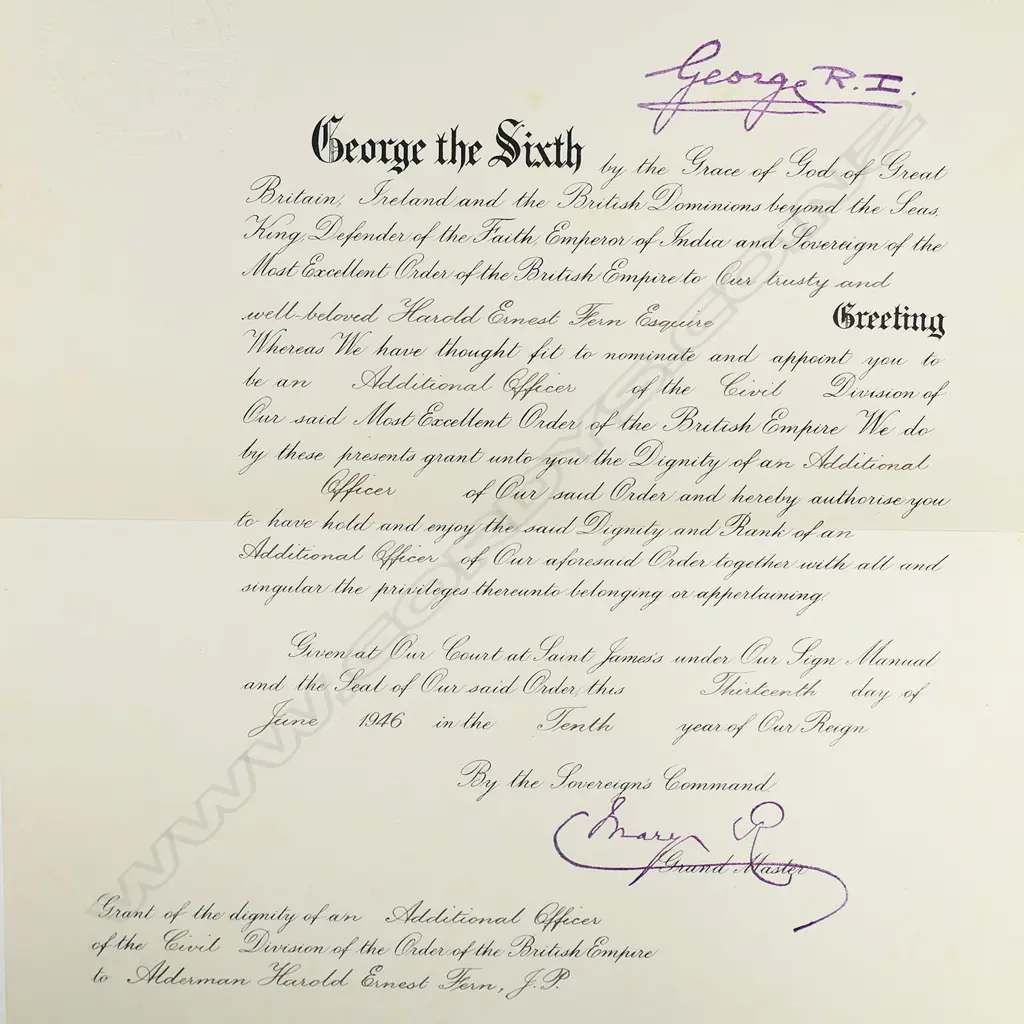 George R.I.
George the Sixth by the Grace of God of Great
Britain, Ireland and the British Dominions beyond the Seas,
King, Defender of the Faith, Emperor of India and Sovereign of the
Most Excellent Order of the British Empire to Our trusty and
well-beloved Harold Ernest Fern Esquire Greeting
Whereas We have thought fit to nominate and appoint you to
be an Additional Officer of the Civil Division of
Our said Most Excellent Order of the British Empire We do
by these presents grant unto you the Dignity of an Additional
Officer of Our said Order and hereby authorise you
to have hold and enjoy the said Dignity and Rank of an
Additional Officer of Our aforesaid Order together with all and
singular the privileges thereunto belonging or appertaining.
Given at Our Court at Saint James's under Our Sign Manual
and the Seal of Our said Order, this Thirteenth day of
June 1946 in the Tenth year of Our Reign
By the Sovereign's Command.
Mary R
Grand Master
Grant of the dignity of an Additional Officer
of the Civil Division of the Order of the British Empire
to Alderman Harold Ernest Fern, J.P.